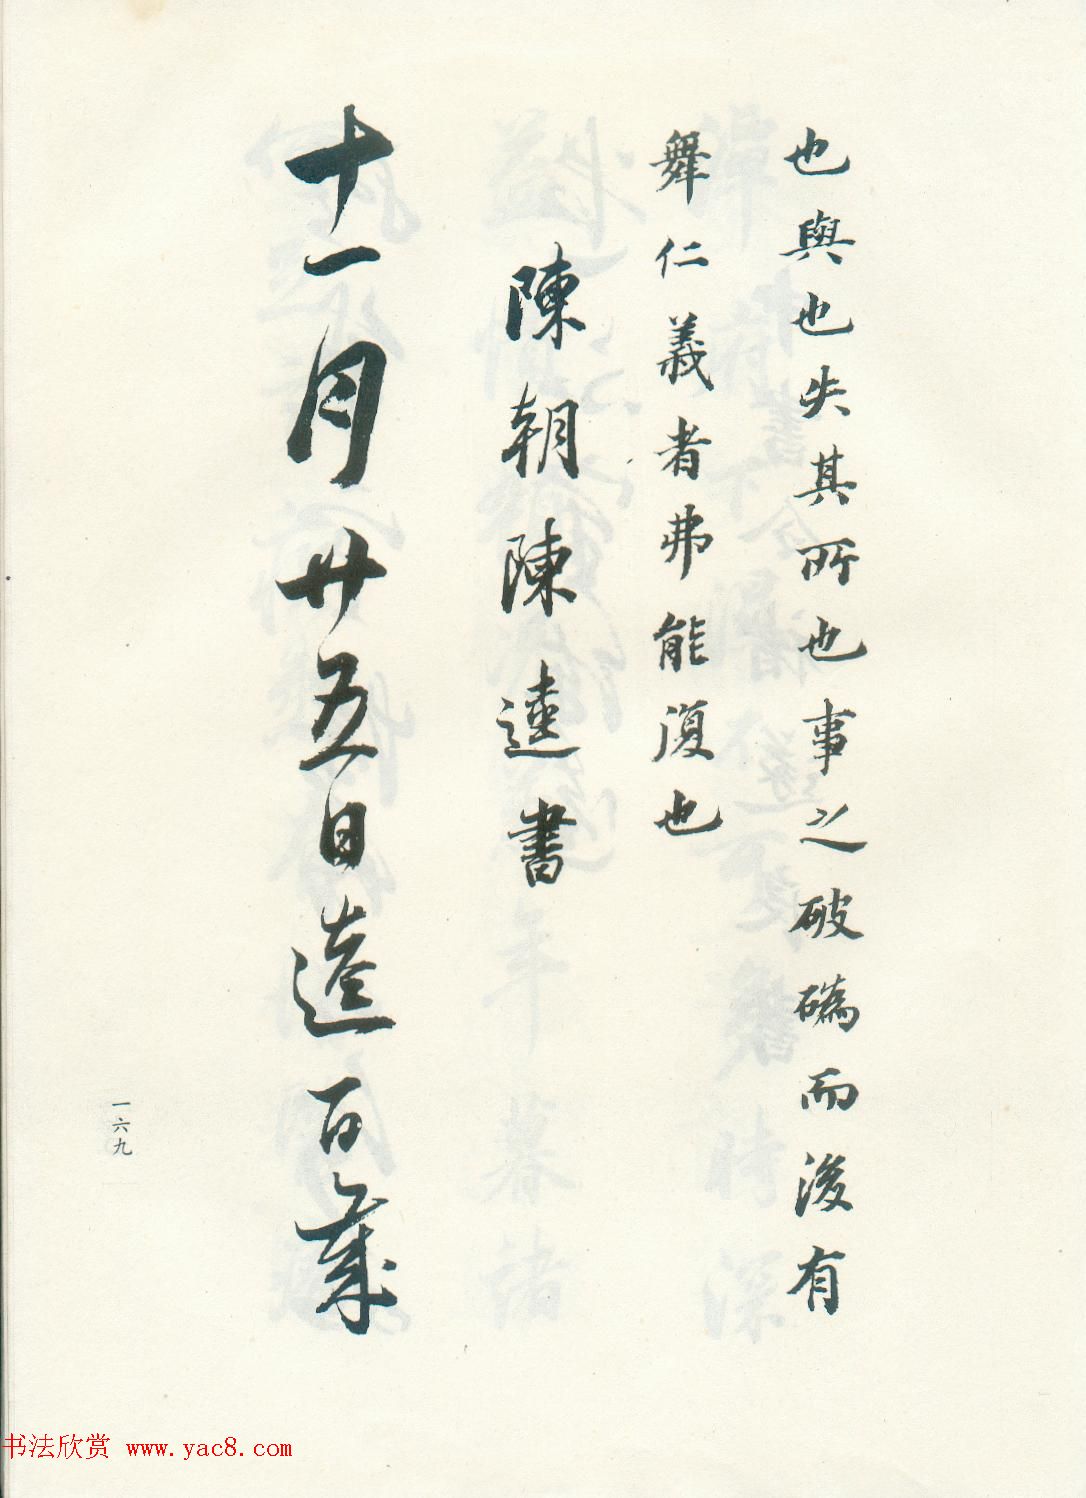 也與也失其所也事之破碼而後有
舞仁義者弗能復也
陳朝陳逵書
十一月廿五日逵百
一六九
书法欣赏 www.yac8.com